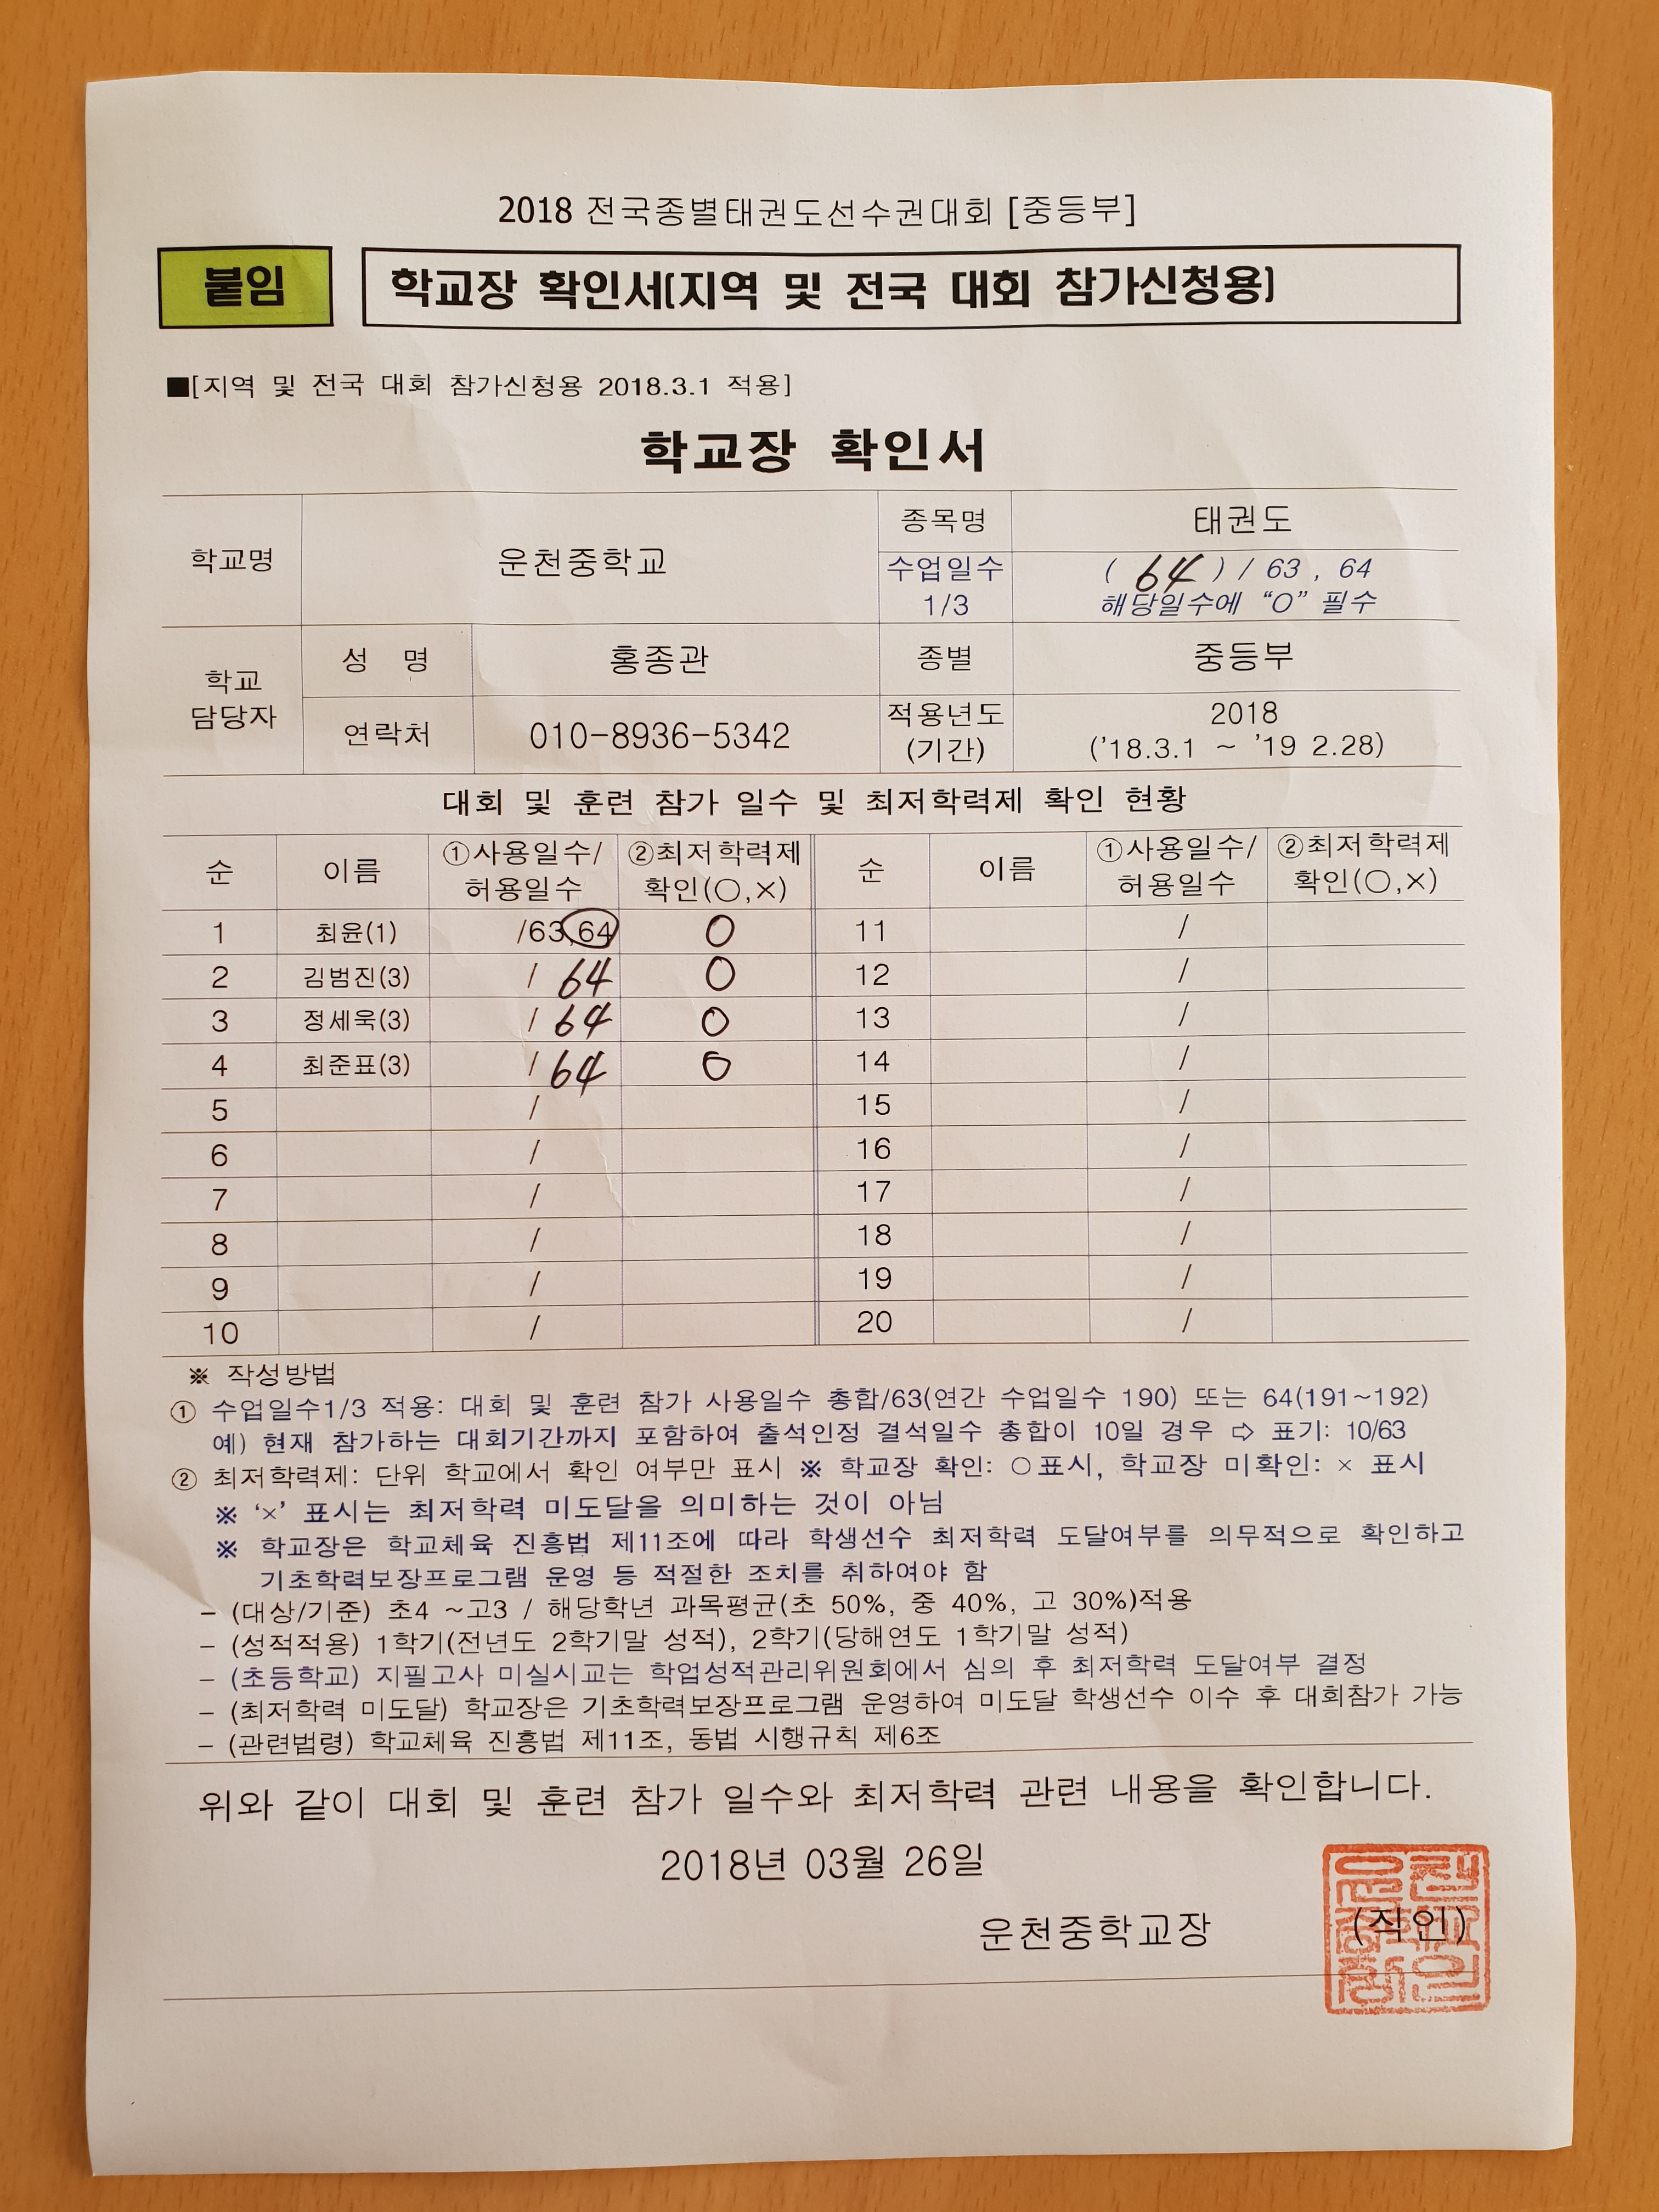 2018 전국종별태권도선수권대회 [중등부]
붙임 학교장 확인서(지역 및 전국 대회 참가신청용)
■[지역 및 전국 대회 참가신청용 2018.3.1 적용]
학교장 확인서
학교명 운천중학교 종목명 태권도
수업일수 1/3 ( 64 ) / 63 , 64
해당일수에 “O” 필수
학교 담당자 성 명 홍종관 종별 중등부
연락처 010-8936-5342 적용년도 (기간) 2018
('18.3.1 ~ '19 2.28)
대회 및 훈련 참가 일수 및 최저학력제 확인 현황
순 이름 ①사용일수/ 허용일수 ②최저학력제 확인(○,×) 순 이름 ①사용일수/ 허용일수 ②최저학력제 확인(○,×)
1 최윤(1) /63,64 O 11 /
2 김범진(3) / 64 O 12 /
3 정세욱(3) / 64 O 13 /
4 최준표(3) / 64 O 14 /
5 / 15 /
6 / 16 /
7 / 17 /
8 / 18 /
9 / 19 /
10 / 20 /
※ 작성방법
① 수업일수1/3 적용: 대회 및 훈련 참가 사용일수 총합/63(연간 수업일수 190) 또는 64(191~192)
예) 현재 참가하는 대회기간까지 포함하여 출석인정 결석일수 총합이 10일 경우 ⇨ 표기: 10/63
② 최저학력제: 단위 학교에서 확인 여부만 표시 ※ 학교장 확인: ○표시, 학교장 미확인: × 표시
※ ‘×’ 표시는 최저학력 미도달을 의미하는 것이 아님
※ 학교장은 학교체육 진흥법 제11조에 따라 학생선수 최저학력 도달여부를 의무적으로 확인하고
기초학력보장프로그램 운영 등 적절한 조치를 취하여야 함
- (대상/기준) 초4 ~고3 / 해당학년 과목평균(초 50%, 중 40%, 고 30%)적용
- (성적적용) 1학기(전년도 2학기말 성적), 2학기(당해연도 1학기말 성적)
- (초등학교) 지필고사 미실시교는 학업성적관리위원회에서 심의 후 최저학력 도달여부 결정
- (최저학력 미도달) 학교장은 기초학력보장프로그램 운영하여 미도달 학생선수 이수 후 대회참가 가능
- (관련법령) 학교체육 진흥법 제11조, 동법 시행규칙 제6조
위와 같이 대회 및 훈련 참가 일수와 최저학력 관련 내용을 확인합니다.
2018년 03월 26일
운천중학교장 (직인)
운천중학교장인